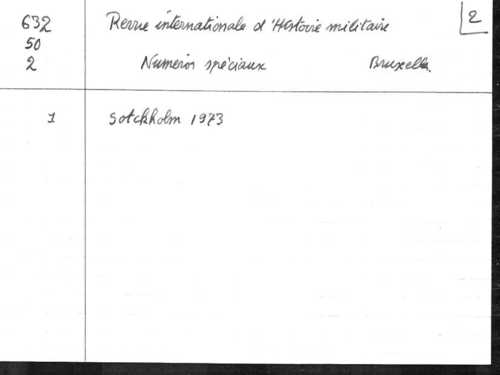 632 Revue internationale d'Histoire militaire 2
50
2 Numeros spéciaux Bruxelles.
1 Sotckholm 1973